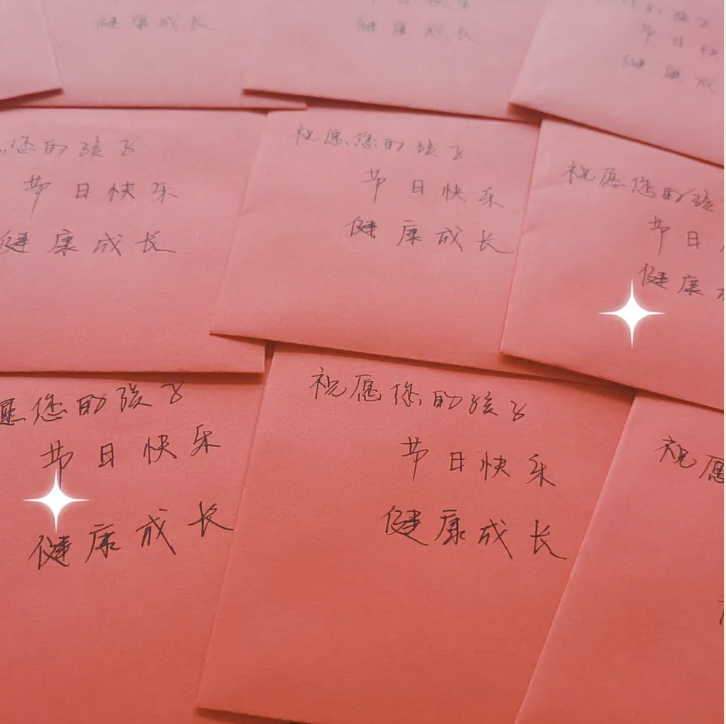 健康成长
快乐
健康成长
孩子
节日快
健康成
您的孩子
节日快乐
健康成长
祝愿您的孩子
节日快乐
健康成长
祝愿您的孩
节日
健康
愿您的孩子
节日快乐
健康成长
祝愿您的孩子
节日快乐
健康成长
祝愿